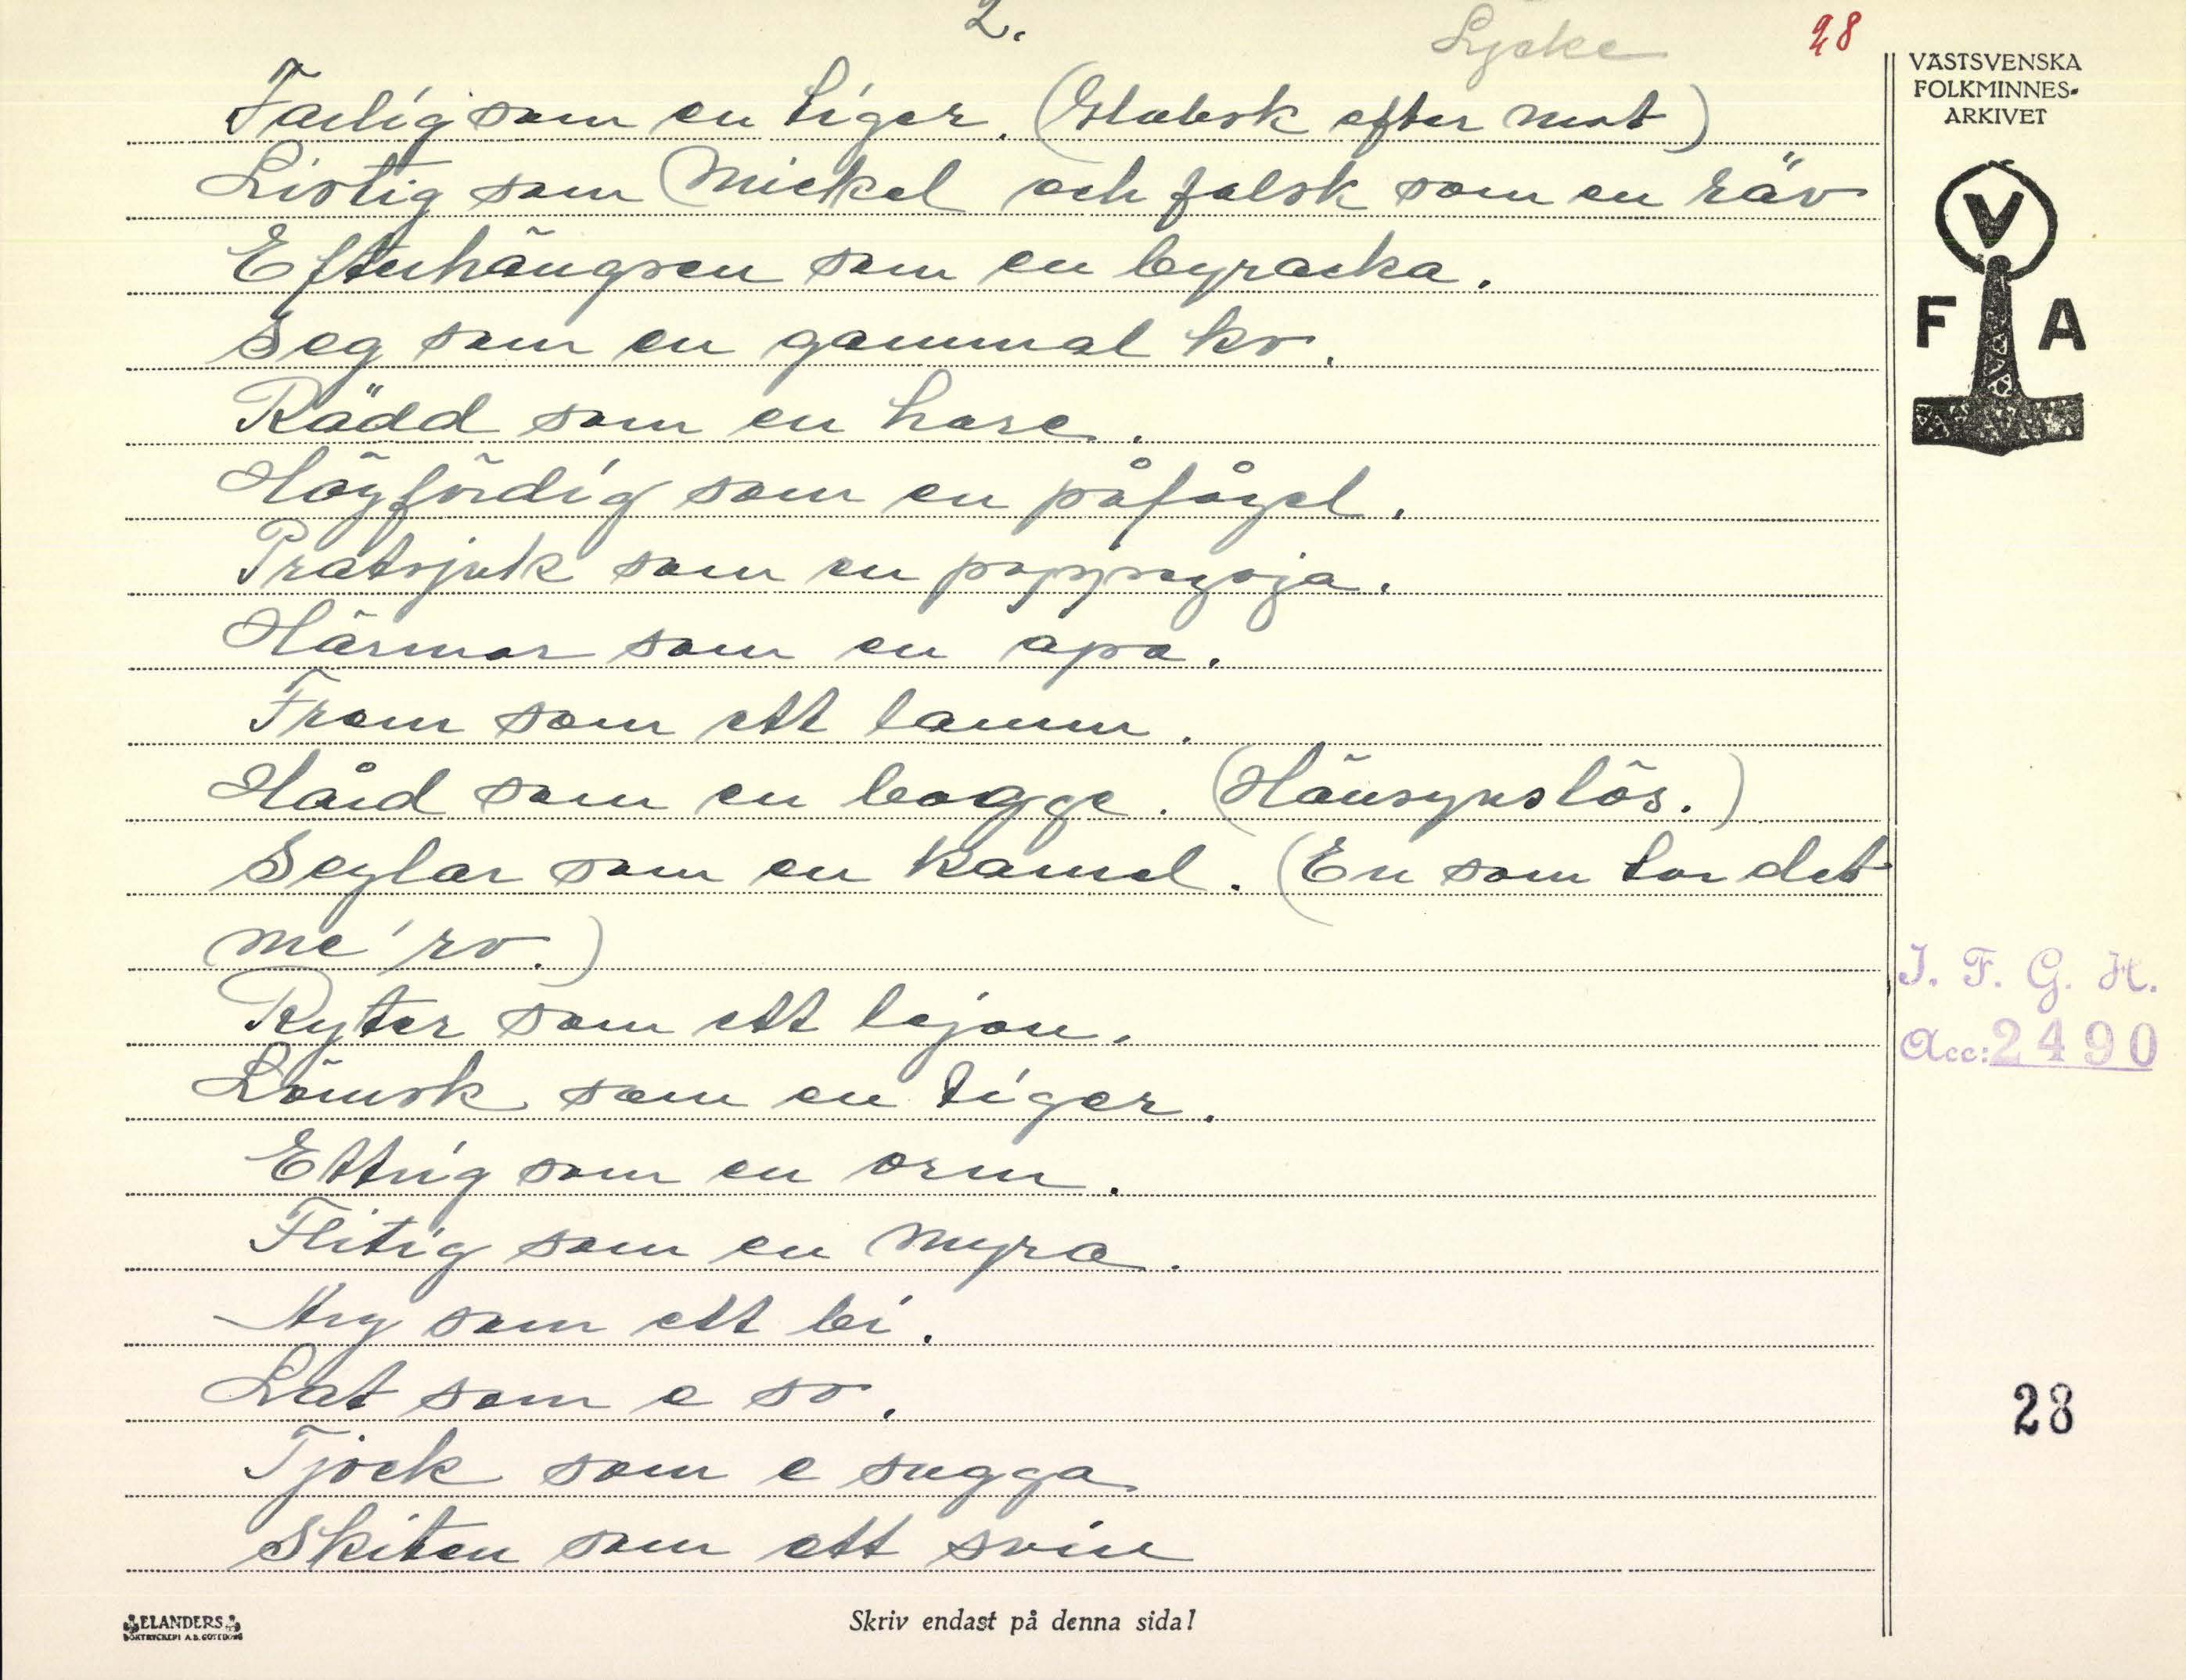 2.
Lyske
28
Farlig som en tiger. (Glubsk efter mat)
Listig som Mickel och falsk som en räv
Efterhängsen som en byracka.
Seg som en gammal ko.
Rädd som en hare.
Högfärdig som en påfågel.
Pratsjuk som en papegoja.
Härmar som en apa.
From som ett lamm.
Hård som en bagge. (Hänsynslös.)
Seglar som en kamel. (En som tar det
me' ro.)
Ryter som ett lejon.
Lömsk som en tiger.
Ettrig som en orm.
Flitig som en myra.
Arg som ett bi.
Lat som e so.
Tjock som e sugga
Skiten som ett svin
VÄSTSVENSKA
FOLKMINNES-
ARKIVET
V
F A
I. F. G. H.
Acc: 2490
28
ELANDERS
BOKTRYCKERI A.B. GÖTEBORG
Skriv endast på denna sida!